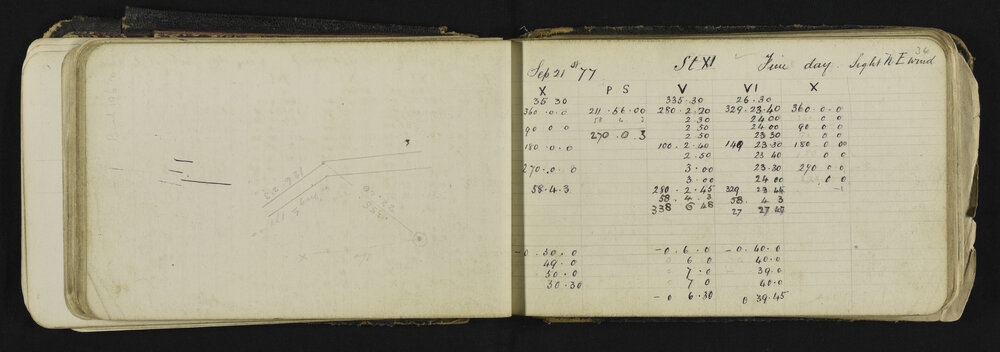 34
Sep 21 st 77 St XI Fine day. Light N E wind
X P S V VI X
35 30 335.30 26.30
360.0.0 211.56.00 280.2.20 329.23.40 360.0.0
58 4 3 2 30 24 00
90 0 0 2 50 24 00 90 0 0
270.0.3 2 50 23 30
180.0.0 100.2.40 149 23.30 180 0 00
2.50 23 40
270.0.0 3.00 23.30 270 0 0
3.00 24 00 0 0
58.4.3 280.2.45 329 23 45 -1
58.4.3 58.4 3
338 6 48 27 27 48
-0.50.0 -0.6.0 -0.40.0
49.0 6 0 40.0
50.0 7.0 39.0
50.30 7 0 40.0
-0 6.30 0 39.45
X